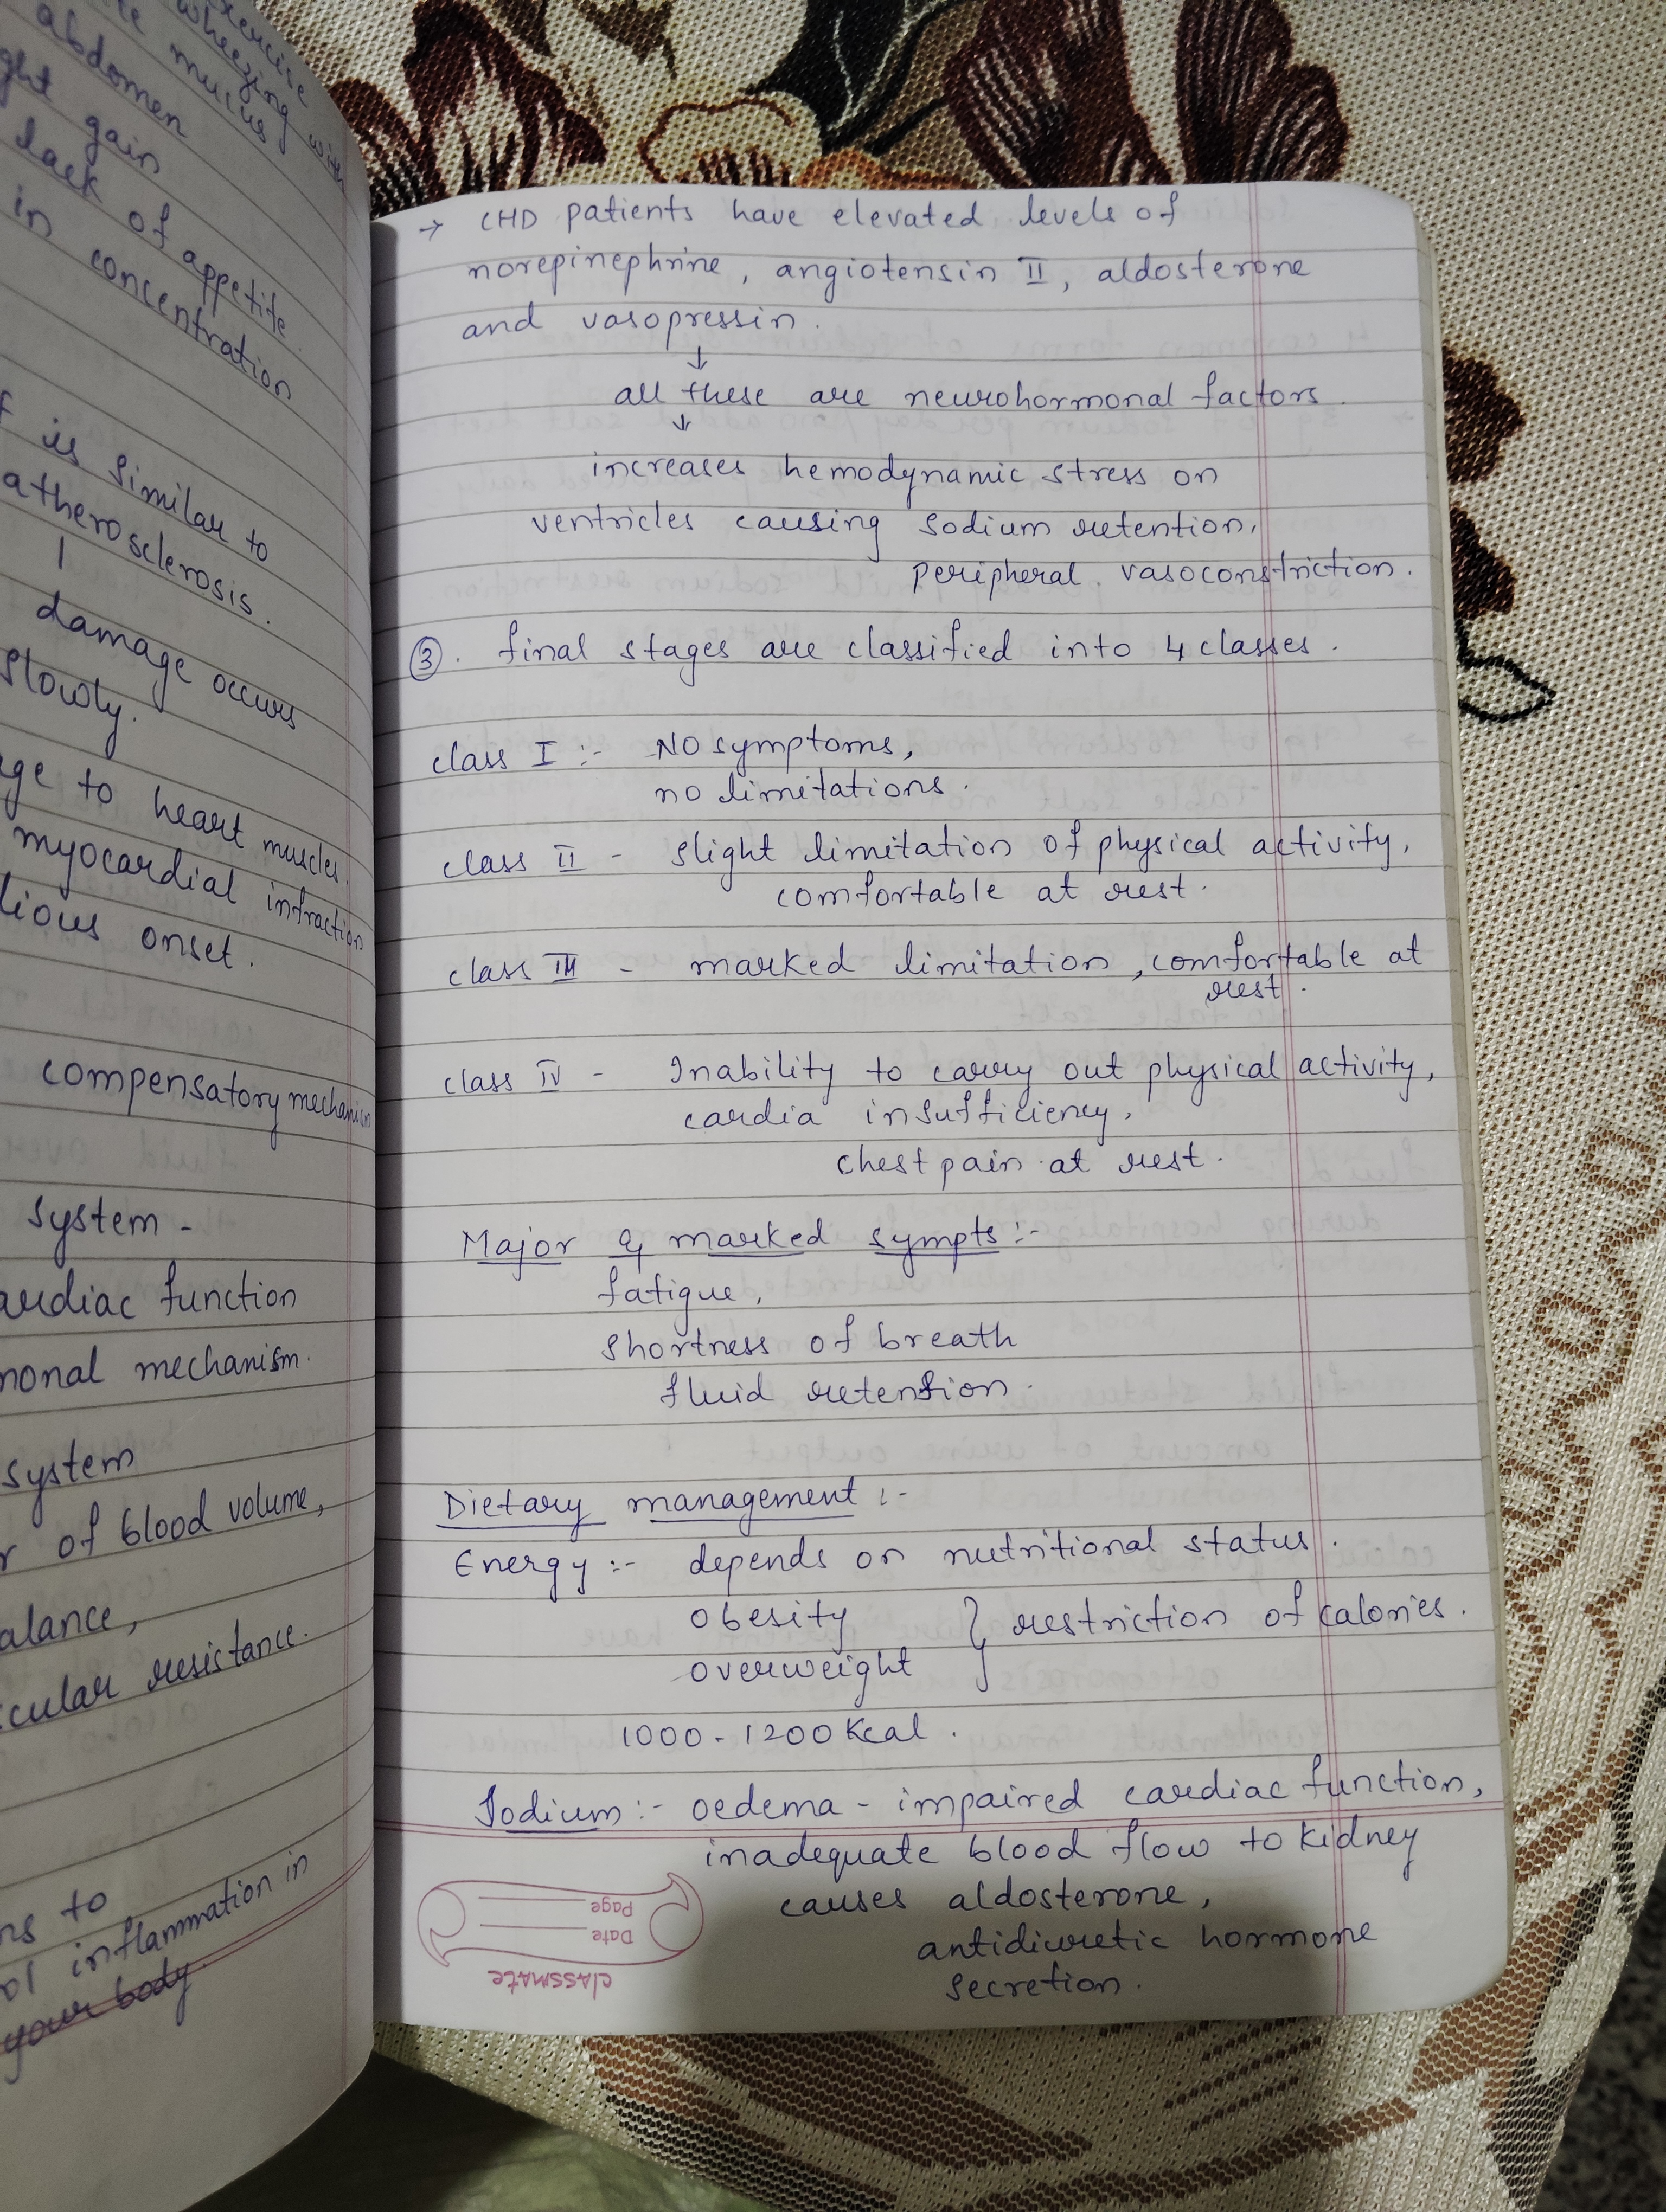 exercise
wheezing with
mucus
abdomen
gain
lack of appetite.
in concentration
is similar to
atherosclerosis.
damage occurs
slowly.
to heart muscles.
myocardial infraction
onset.
compensatory mechanism
system -
function
mechanism.
system
of blood volume,
resistance.
to
inflammation in
your body.
→ CHD patients have elevated levels of
norepinephrine, angiotensin II, aldosterone
and vasopressin.
↓
all these are neurohormonal factors.
↓
increases hemodynamic stress on
ventricles causing sodium retention,
peripheral vasoconstriction.
③. final stages are classified into 4 classes.
class I :- No symptoms,
no limitations.
class II - slight limitation of physical activity,
comfortable at rest.
class III - marked limitation, comfortable at
rest.
class IV - Inability to carry out physical activity,
cardia insufficiency,
chest pain at rest.
Major & marked sympts :-
fatigue,
shortness of breath
fluid retension.
Dietary management :-
Energy :- depends on nutritional status.
obesity } restriction of calories.
overweight
1000-1200 Kcal.
Sodium :- oedema - impaired cardiac function,
inadequate blood flow to kidney
causes aldosterone,
antidiuretic hormone
secretion.
classmate
Date
Page